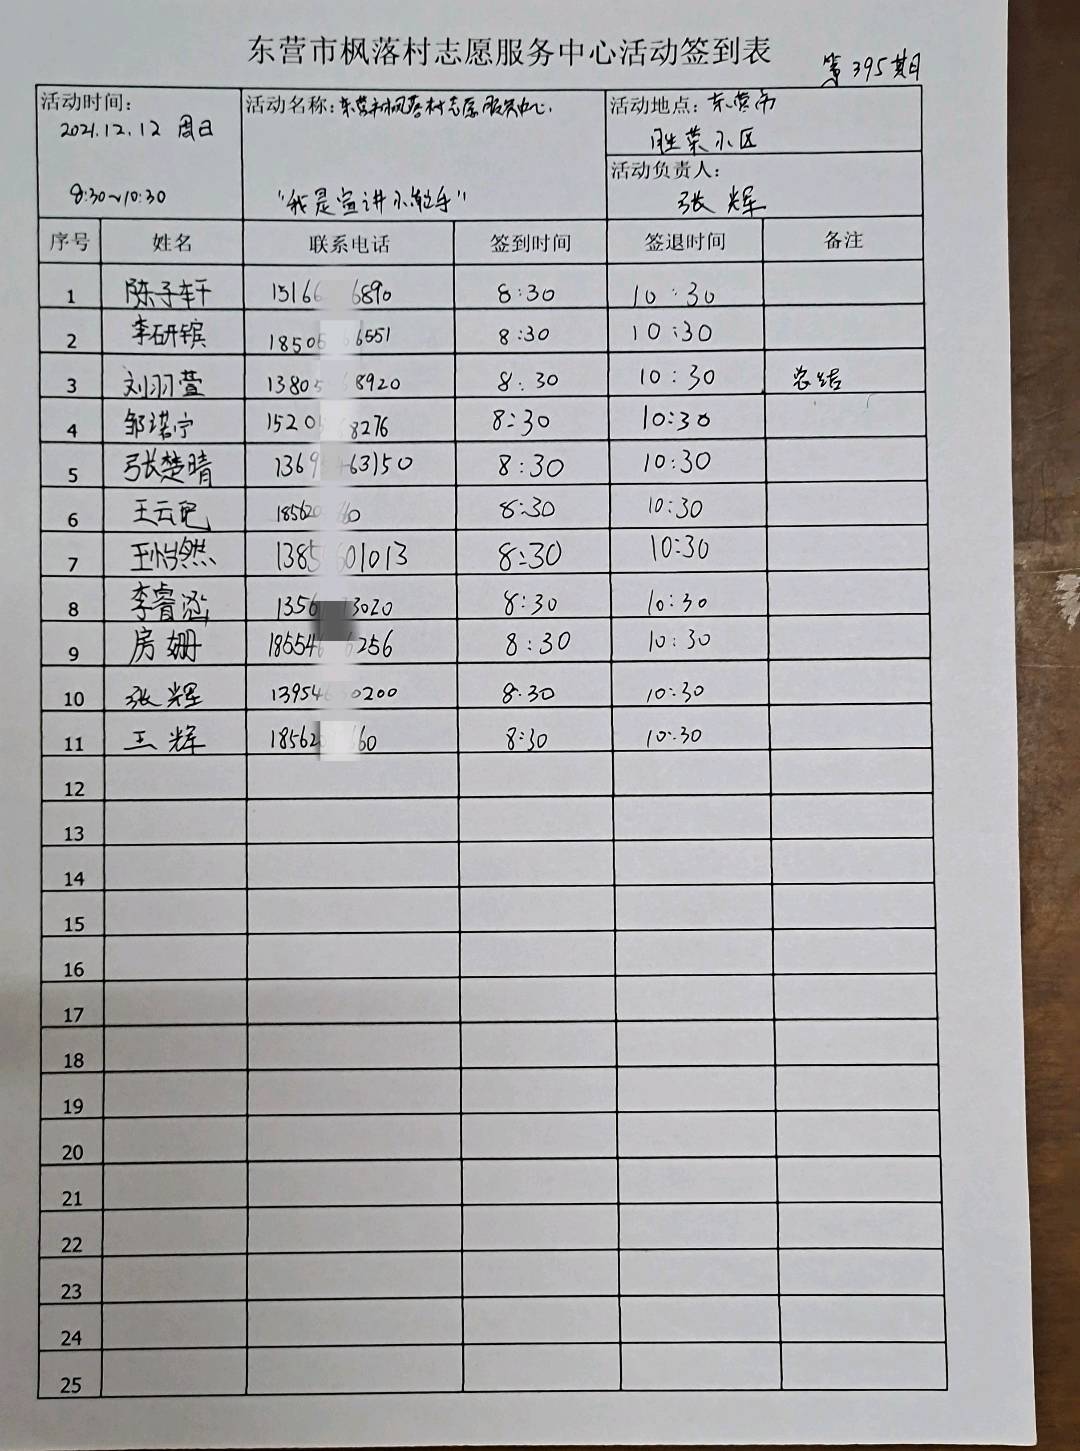 东营市枫落村志愿服务中心活动签到表
第395期
活动时间：
2021.12.12 周日
8:30~10:30
活动名称：东营市枫落村志愿服务中心
"我是宣讲小能手"
活动地点：东营市
胜荣小区
活动负责人：
张辉
序号 姓名 联系电话 签到时间 签退时间 备注
1 陈子轩 15166 6890 8:30 10:30
2 李研镔 18505 6551 8:30 10:30
3 刘羽萱 13805 8920 8:30 10:30
4 邹诺宁 1520 8276 8:30 10:30
5 张楚晴 1369 63150 8:30 10:30
6 王云 18562 60 8:30 10:30
7 王怡然 1385 601013 8:30 10:30
8 李睿涵 1356 3020 8:30 10:30
9 房姗 18554 6256 8:30 10:30
10 张辉 13954 0200 8:30 10:30
11 王辉 18562 60 8:30 10:30
12
13
14
15
16
17
18
19
20
21
22
23
24
25